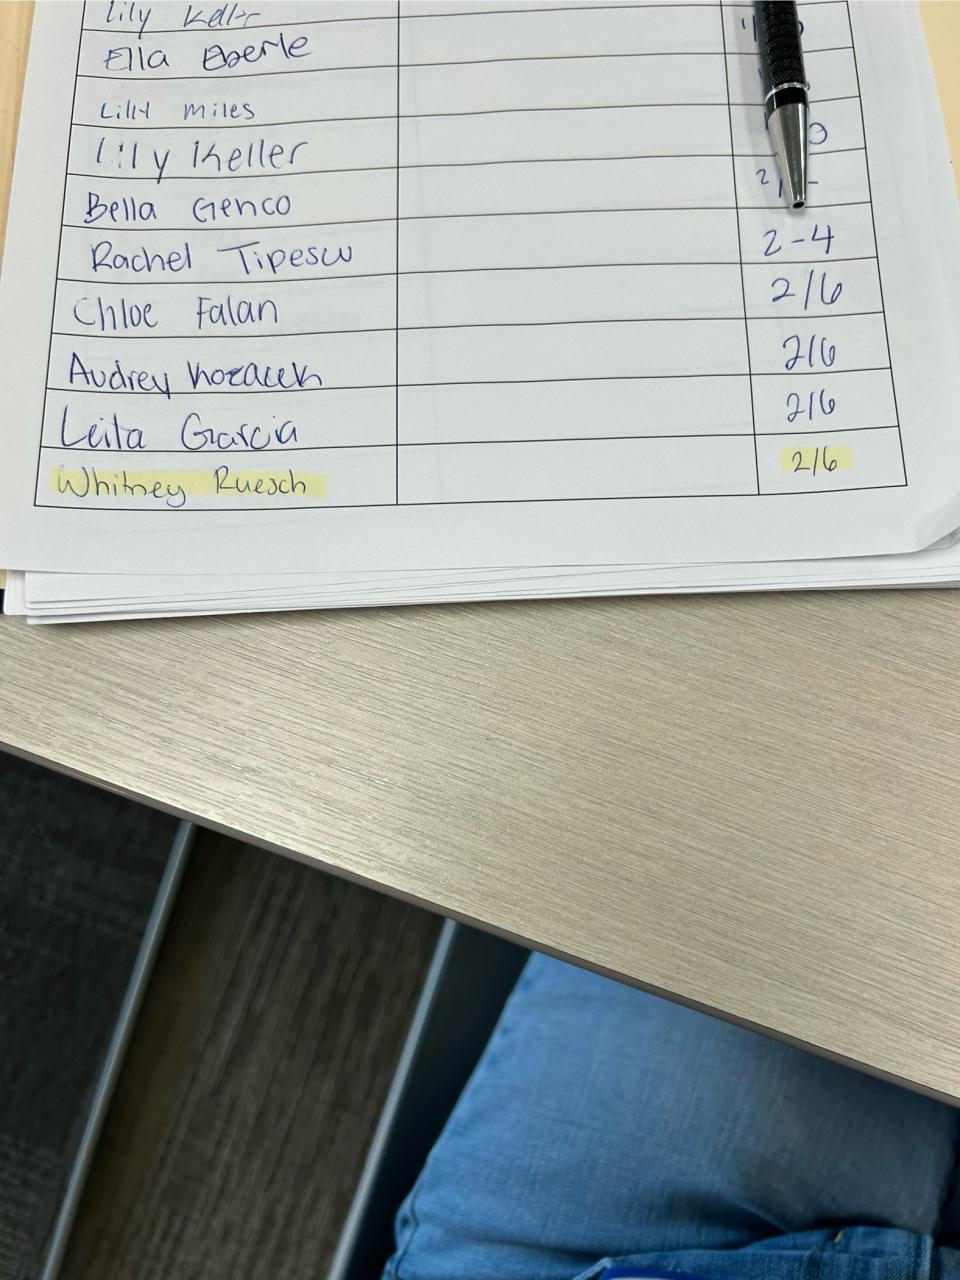 Lily Keller
Ella Eberle
Lilly Miles
Lily Keller
Bella Genco
Rachel Tipescu 2-4
Chloe Falan 2/6
Audrey Kozacek 2/6
Leila Garcia 2/6
Whitney Ruesch 2/6